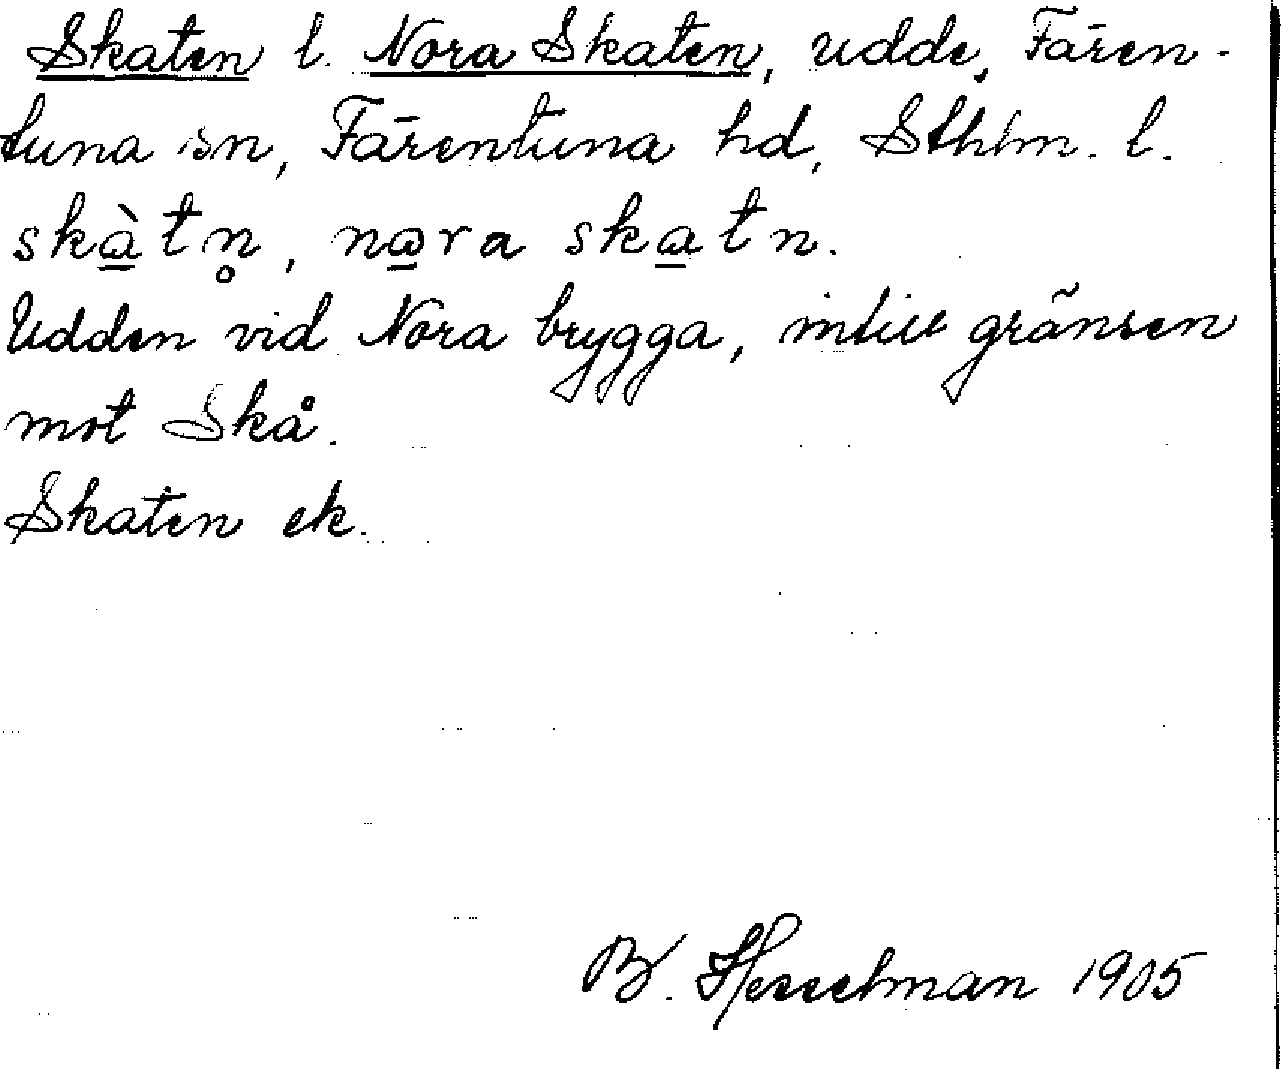 Skaten l. Nora Skaten, udde, Fären-
tuna sn, Färentuna hd, Sthlm. l.
skàtn̥, nꞷra skatn.
Udden vid Nora brygga, intill gränsen
mot Skå.
Skaten ek.
B. Hesselman 1905